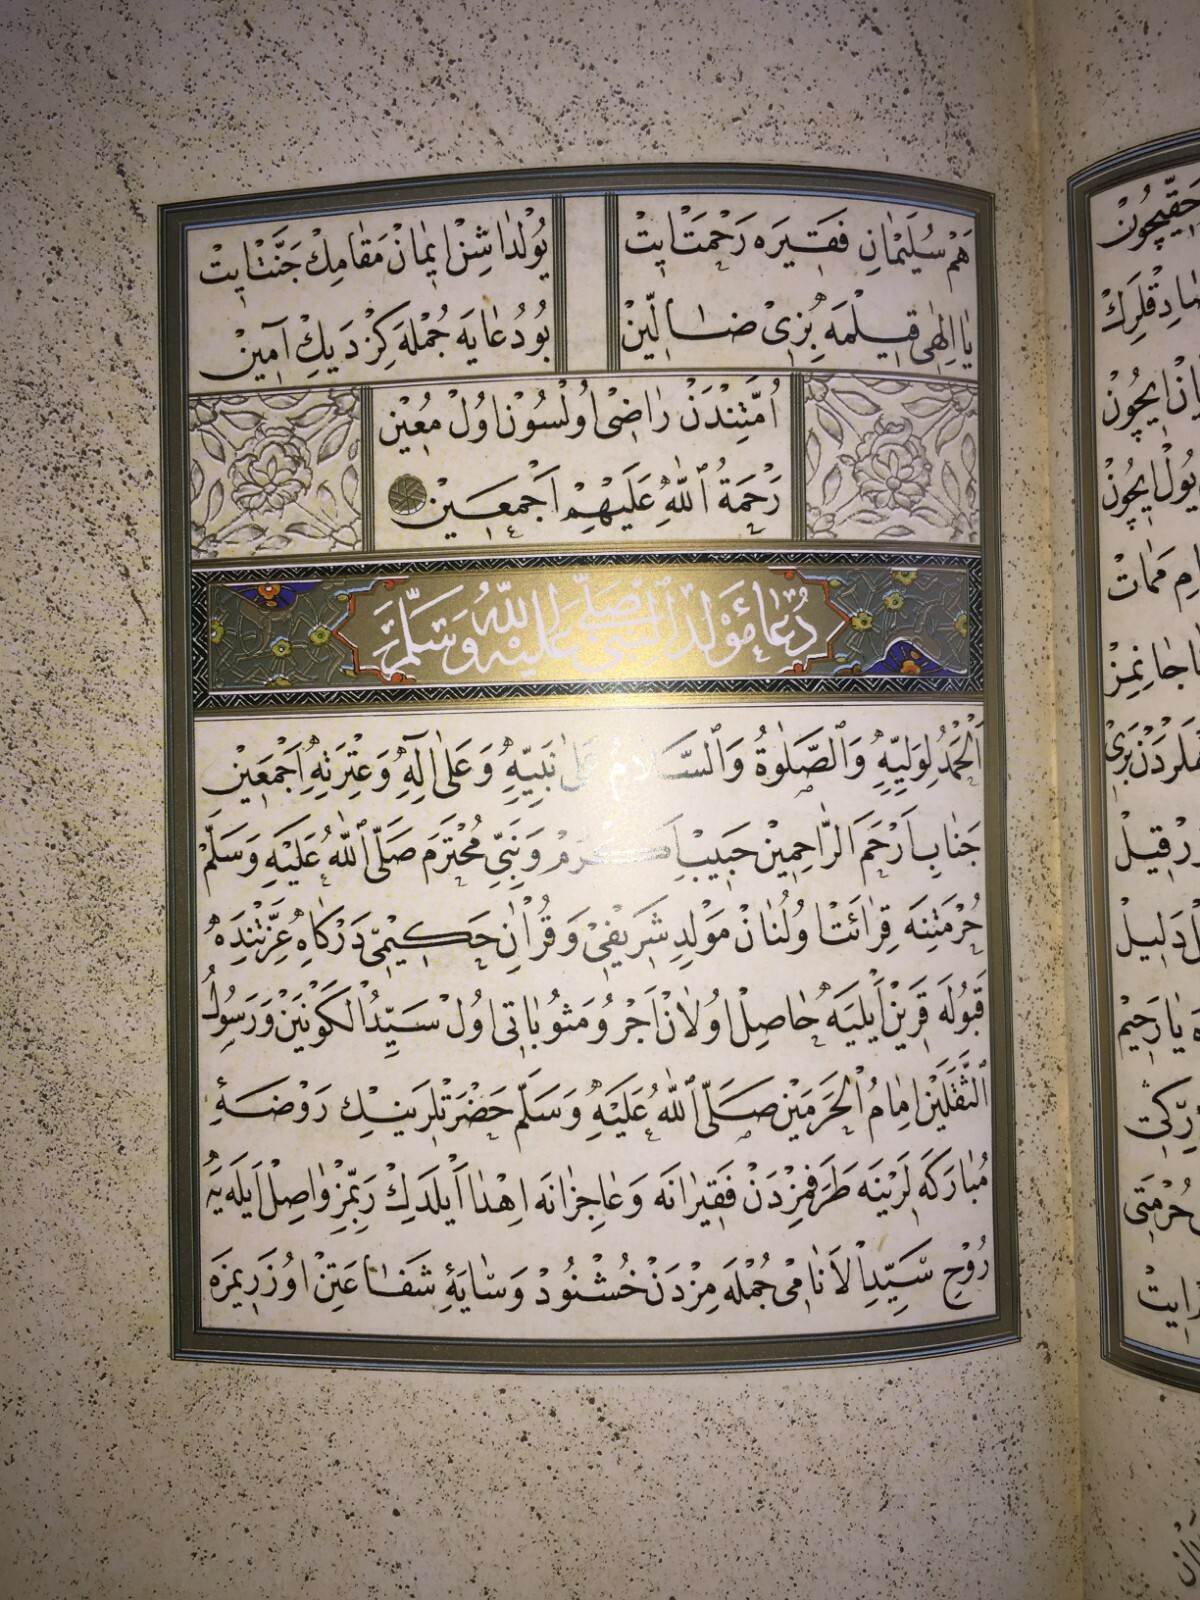 هَمْ سُلَيْمَانِ فَقِيرَه رَحْمَتْ اِيتْ
يُولْدَاشِنْ اِيمَانْ مَقَامِكْ جَنَّتْ اِيتْ
يَا اِلٰهِى قِيلْمَه بِزِى ضَالِّينْ
بُو دُعَايَه جُمْلَه كِزْ دَيِكْ آمِينْ
اُمَّتِنْدَنْ رَاضِى اُولْسُونْ اُولْ مُعِينْ
رَحْمَةُ ٱللّٰهِ عَلَيْهِمْ اَجْمَعِينْ
دُعَاءِ مَوْلِدِ ٱلنَّبِى صَلَّى ٱللّٰهُ عَلَيْهِ وَسَلَّمَ
اَلْحَمْدُ لِوَلِيِّهِ وَٱلصَّلٰوةُ وَٱلسَّلَامُ عَلٰى نَبِيِّهِ وَعَلٰى اٰلِهِ وَعِتْرَتِهِ اَجْمَعِينْ
جَنَابِ اَرْحَمَ الرَّاحِمِينْ حَبِيبِ اَكْرَمْ وَنَبِىِّ مُحْتَرَمْ صَلَّى ٱللّٰهُ عَلَيْهِ وَسَلَّمْ
حُرْمَتِنَه قِرَائَتْ اُولُنَانْ مَوْلِدِ شَرِيفِى وَقُرْاٰنِ حَكِيمِى دَرْكَاهِ عِزَّتِنْدَه
قَبُولَه قَرِينْ اَيْلَيَه حَاصِلْ اُولَانْ اَجْرُ و مَثُوبَاتِى اُولْ سَيِّدُ الْكَوْنَيْنْ وَرَسُولُ
الثَّقَلَيْنْ اِمَامُ الْحَرَمَيْنْ صَلَّى ٱللّٰهُ عَلَيْهِ وَسَلَّمْ حَضْرَتْلَرِينِكْ رَوْضَۀِ
مُبَارَكَه لَرِينَه طَرَفِمِزْدَنْ فَقِيرَانَه وَعَاجِزَانَه اِهْدَا اَيْلَدِكْ رَبِّمِزْ وَاصِلْ اَيْلَيَه
رُوحِ سَيِّدِ الْاَنَامِى جُمْلَه مِزْدَنْ خُشْنُودْ وَسَايَۀِ شَفَاعَتِنْ اُوزَرِيمِزَه